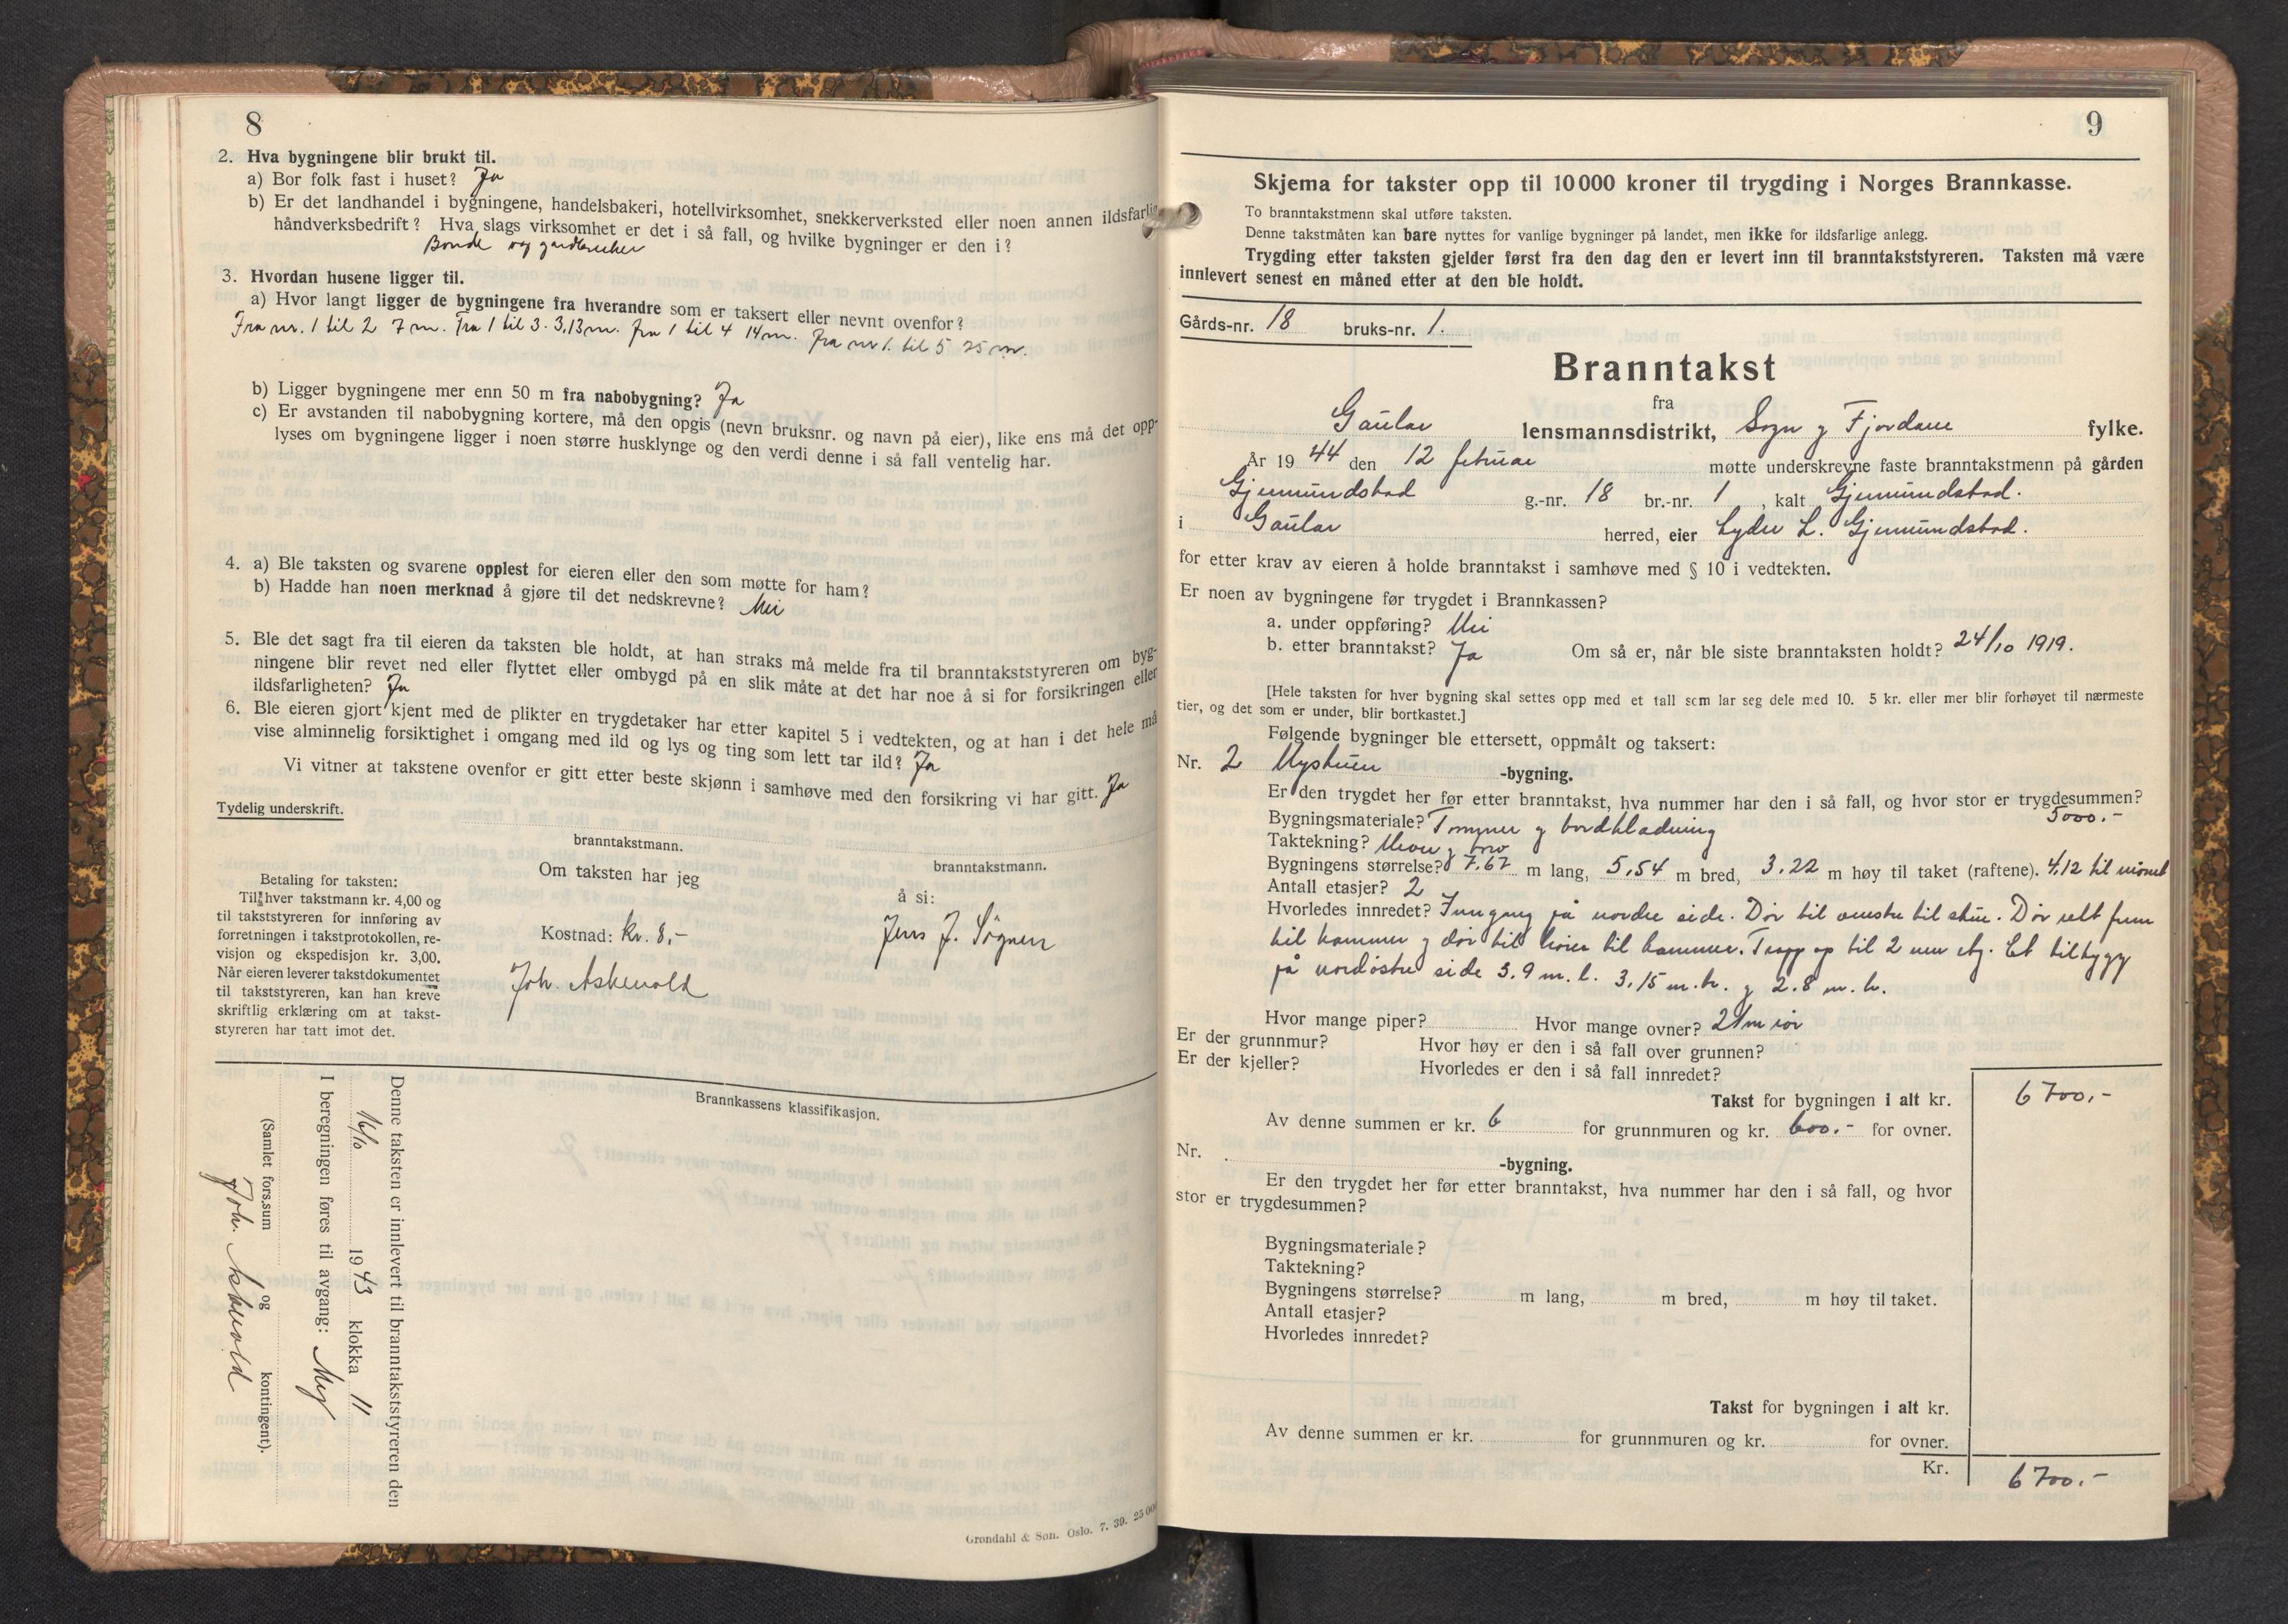 8
2. Hva bygningene blir brukt til.
a) Bor folk fast i huset? Ja
b) Er det landhandel i bygningene, handelsbakeri, hotellvirksomhet, snekkerverksted eller noen annen ildsfarlig
håndverksbedrift? Hva slags virksomhet er det i så fall, og hvilke bygninger er den i?
Bonde og gardbruker
3. Hvordan husene ligger til.
a) Hvor langt ligger de bygningene fra hverandre som er taksert eller nevnt ovenfor?
Fra nr. 1 til 2 7 m. Fra 1 til 3 3,13 m. fra 1 til 4 14 m. fra nr 1. til 5 25 m.
b) Ligger bygningene mer enn 50 m fra nabobygning? Ja
c) Er avstanden til nabobygning kortere, må den opgis (nevn bruksnr. og navn på eier), like ens må det opp-
lyses om bygningene ligger i noen større husklynge og den verdi denne i så fall ventelig har.
4. a) Ble taksten og svarene opplest for eieren eller den som møtte for ham?
b) Hadde han noen merknad å gjøre til det nedskrevne? Nei
5. Ble det sagt fra til eieren da taksten ble holdt, at han straks må melde fra til branntakststyreren om byg-
ningene blir revet ned eller flyttet eller ombygd på en slik måte at det har noe å si for forsikringen eller
ildsfarligheten? Ja
6. Ble eieren gjort kjent med de plikter en trygdetaker har etter kapitel 5 i vedtekten, og at han i det hele må
vise alminnelig forsiktighet i omgang med ild og lys og ting som lett tar ild? Ja
Vi vitner at takstene ovenfor er gitt etter beste skjønn i samhøve med den forsikring vi har gitt. Ja
Tydelig underskrift.
branntakstmann.
branntakstmann.
Om taksten har jeg
å si:
Betaling for taksten:
Til hver takstmann kr. 4,00 og
til takststyreren for innføring av
forretningen i takstprotokollen, re-
visjon og ekspedisjon kr. 3,00.
Når eieren leverer takstdokumentet
til takststyreren, kan han kreve
skriftlig erklæring om at takst-
styreren har tatt imot det.
Kostnad: kr. 8,-
Jens J. Sögnen
Joh. Askevold
Brannkassens klassifikasjon.
Denne taksten er innlevert til branntakststyreren den
16/10 1943 klokka 11
I beregningen føres til avgang:
(Samlet fors.sum og kontingent).
Joh. Askevold
Grøndahl & Søn. Oslo. 7. 39. 25 000
9
Skjema for takster opp til 10 000 kroner til trygding i Norges Brannkasse.
To branntakstmenn skal utføre taksten.
Denne takstmåten kan bare nyttes for vanlige bygninger på landet, men ikke for ildsfarlige anlegg.
Trygding etter taksten gjelder først fra den dag den er levert inn til branntakststyreren. Taksten må være
innlevert senest en måned etter at den ble holdt.
Gårds-nr. 18 bruks-nr. 1.
Branntakst
fra
Gaular lensmannsdistrikt, Sogn og Fjordane fylke.
År 1944 den 12 februar møtte underskrevne faste branntakstmenn på gården
Gjemundstad g.-nr. 18 br.-nr. 1, kalt Gjemundstad.
i Gaular herred, eier Lyder L. Gjemundstad.
for etter krav av eieren å holde branntakst i samhøve med § 10 i vedtekten.
Er noen av bygningene før trygdet i Brannkassen?
a. under oppføring? Nei
b. etter branntakst? Ja Om så er, når ble siste branntaksten holdt? 24/10 1919.
[Hele taksten for hver bygning skal settes opp med et tall som lar seg dele med 10. 5 kr. eller mer blir forhøyet til nærmeste
tier, og det som er under, blir bortkastet.]
Følgende bygninger ble ettersett, oppmålt og taksert:
Nr. 2 Nystuen -bygning.
Er den trygdet her før etter branntakst, hva nummer har den i så fall, og hvor stor er trygdesummen?
5000.-
Bygningsmateriale? Tømmer og bordkledning
Taktekning? Never og torv
Bygningens størrelse? 7.67 m lang, 5,54 m bred, 3.22 m høy til taket (raftene). 4,12 til mønet
Antall etasjer? 2
Hvorledes innredet? Inngang på nordre side. Dør til venstre til stue. Dør rett frem
til kammer og dør til høire til kammer. Trapp op til 2 nen etg. Et tilbygg
på nordøstre side 3.9 m. l. 3,15 m. br. og 2.8 m. h.
Hvor mange piper? Hvor mange ovner? 2
Er der grunnmur? Hvor høy er den i så fall over grunnen?
Er der kjeller? Hvorledes er den i så fall innredet?
Takst for bygningen i alt kr. 6700.-
Av denne summen er kr. 6 for grunnmuren og kr. 600.- for ovner.
Nr. -bygning.
Er den trygdet her før etter branntakst, hva nummer har den i så fall, og hvor
stor er trygdesummen?
Bygningsmateriale?
Taktekning?
Bygningens størrelse? m lang, m bred, m høy til taket.
Antall etasjer?
Hvorledes innredet?
Takst for bygningen i alt kr.
Av denne summen er kr. for grunnmuren og kr. for ovner.
Kr. 6700.-